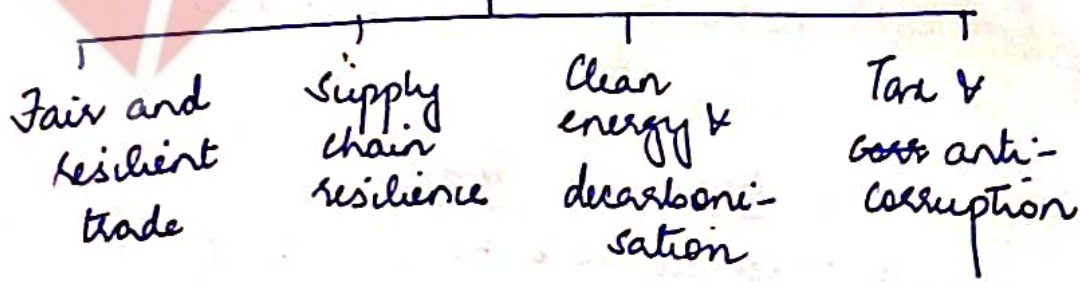 Fair and
resilient
trade
Supply
chain
resilience
Clean
energy &
decarboni-
sation
Tax &
anti-
corruption